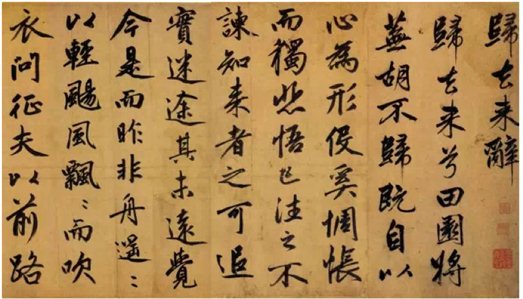 歸去来辭
歸去来兮田園將
蕪胡不歸既自以
心為形役奚惆悵
而獨悲悟已往之不
諫知来者之可追
實迷途其未遠覺
今是而昨非舟遥〻
以輕颺風飄〻而吹
衣問征夫以前路